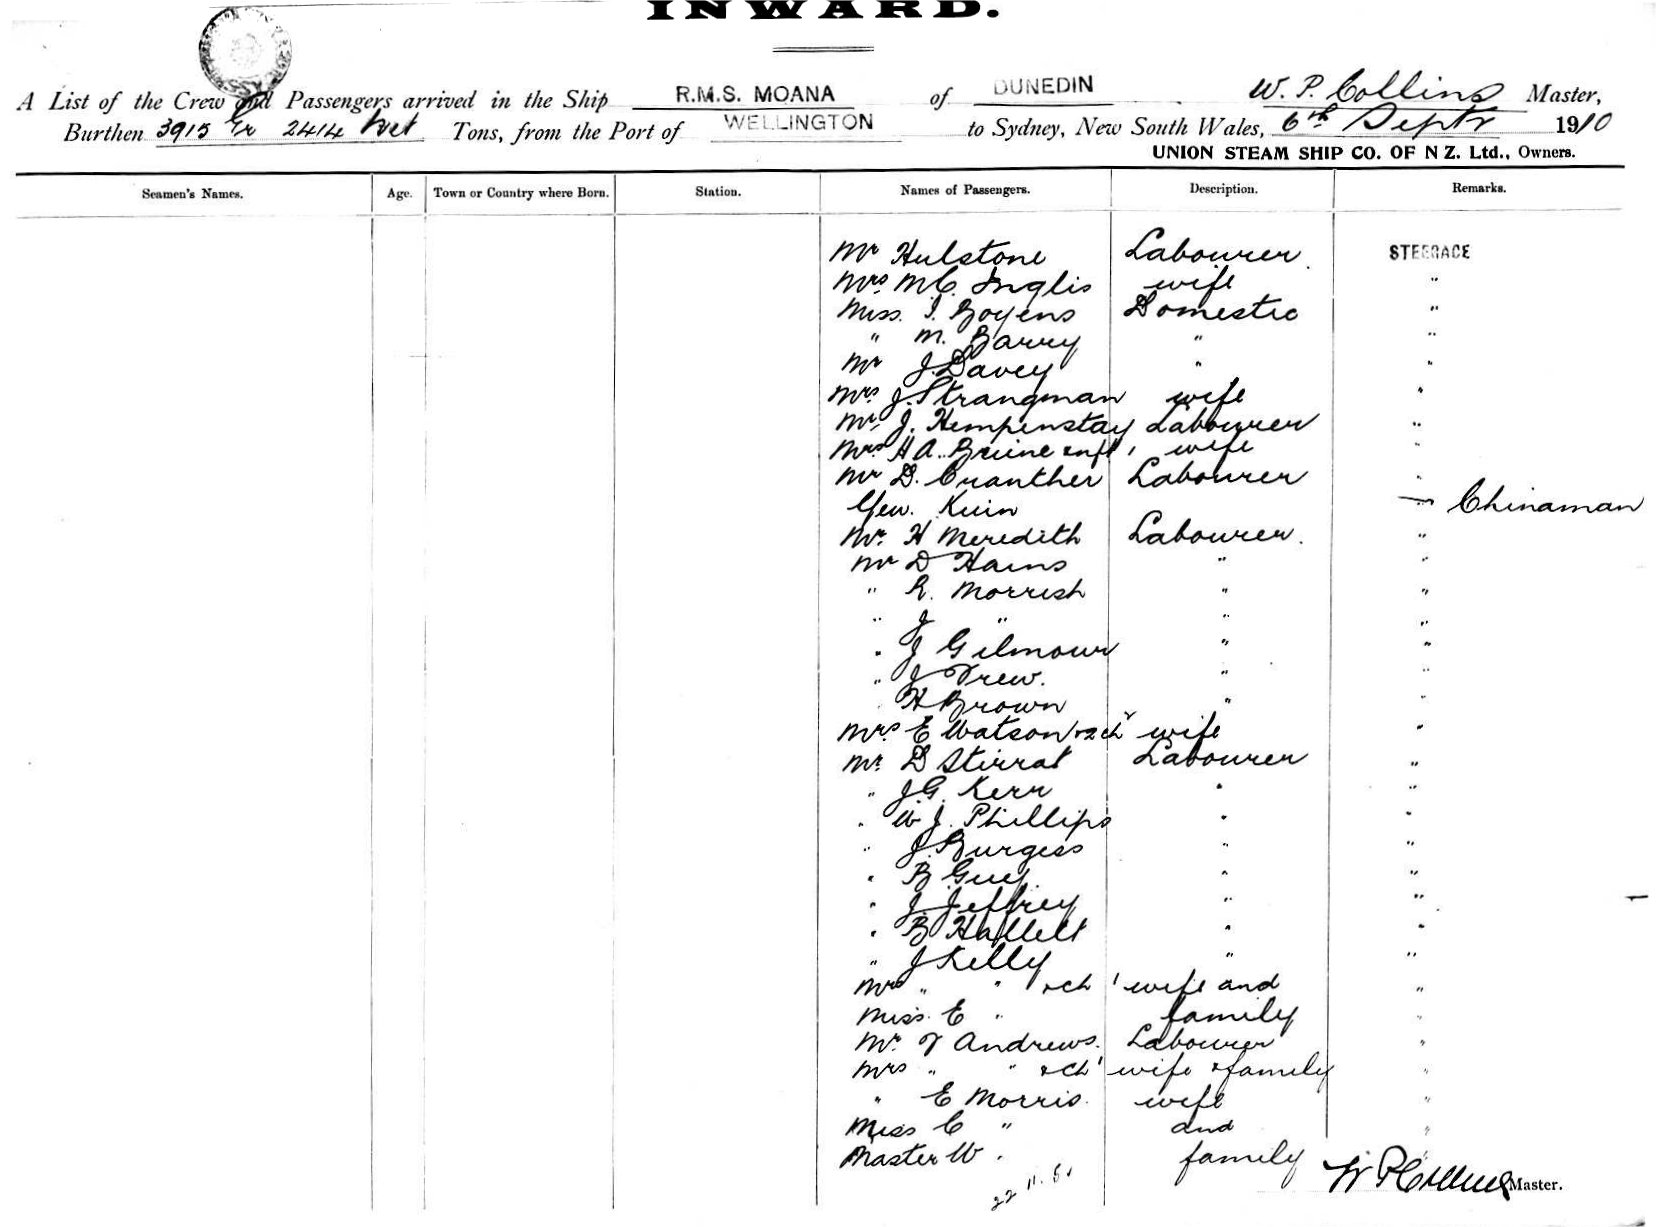 INWARD.
A List of the Crew and Passengers arrived in the Ship R.M.S. MOANA of DUNEDIN W. P. Collins Master,
Burthen 3915 Gr 2414 Net Tons, from the Port of WELLINGTON to Sydney, New South Wales, 6th Septr 1910
UNION STEAM SHIP CO. OF N Z. Ltd., Owners.
Seamen's Names. Age. Town or Country where Born. Station. Names of Passengers. Description. Remarks.
Mr Hulstone Labourer. STEERAGE
Mrs. M C. Inglis wife "
Miss. I. Boyens Domestic "
" M. Barry " "
Mr J. Davey " "
Mrs J. Strangman wife "
Mr. J. Hempenstay Labourer "
Mrs H A. Brune & inft 1 wife "
Mr D. Cranther Labourer "
Yew. Kuin " Chinaman
Mr. H Meredith Labourer. "
Mr D Hains " "
" R. Morrish " "
" J " " "
" J Gilmour " "
" J Drew. " "
" H Brown " "
Mrs E Watson & 2 ch wife "
Mr. D Stirrat Labourer "
" J.G. Kerr " "
" W J. Phillips " "
" J. Burgess " "
" B Guy " "
" J. Jeffrey " "
" B Hallett " "
" J Kelly " "
Mrs " " & ch 1 wife and "
Miss. E " family "
Mr. T Andrews. Labourer "
Mrs " " & ch 1 wife & family "
" E Morris. wife "
Miss C " and "
Master W " family "
22 11. 61
W P Collins Master.